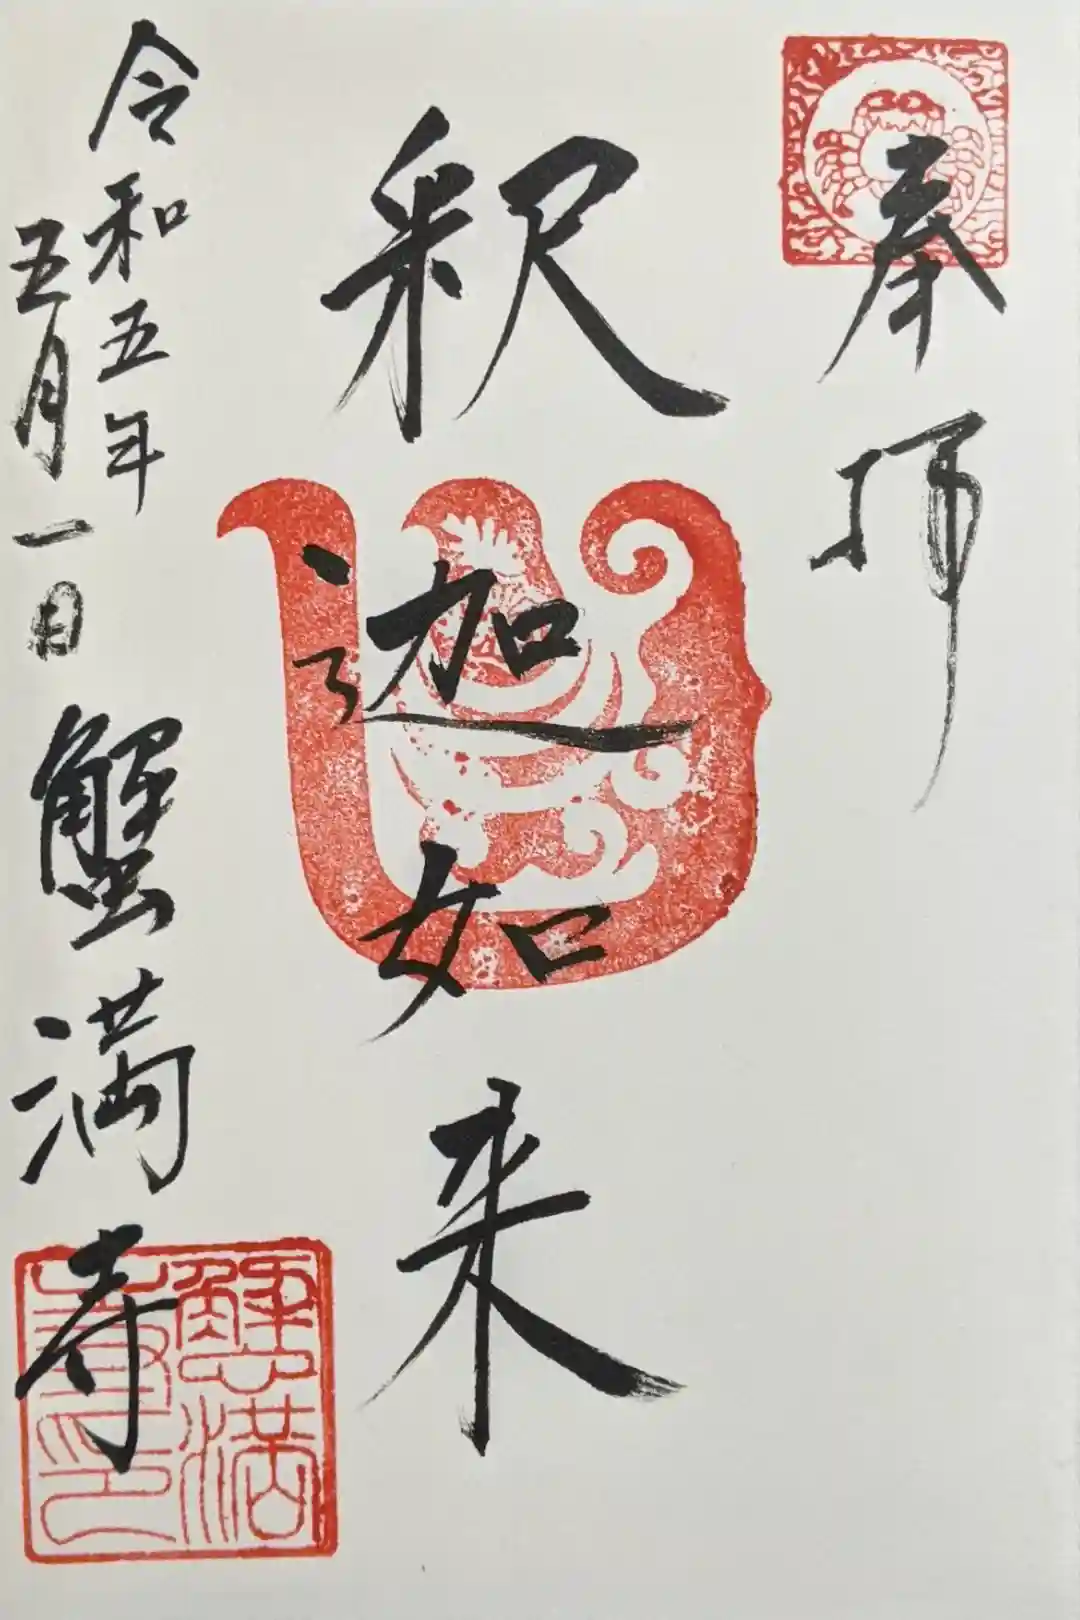 奉拝
釈迦如来
令和五年
五月一日
蟹満寺
蟹満寺印